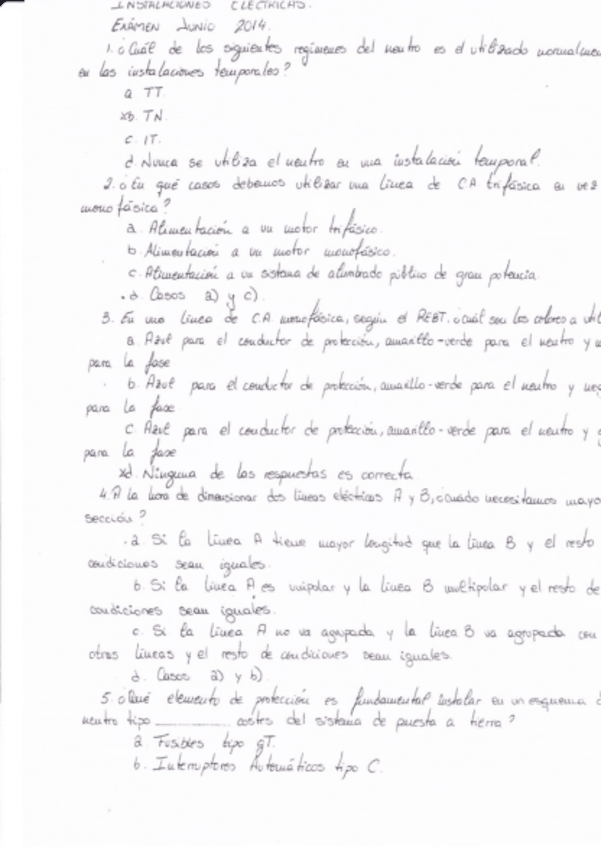 INSTALACIONES ELÉCTRICAS.
EXÁMEN JUNIO 2014.
1. ¿Cuál de los siguientes regímenes del neutro es el utilizado
en las instalaciones temporales?
a. TT.
xb. TN.
c. IT.
d. Nunca se utiliza el neutro en una instalación temporal.
2. ¿En qué casos debemos utilizar una línea de C.A trifásica en vez
monofásica?
a. Alimentación a un motor trifásico.
b. Alimentación a un motor monofásico.
c. Alimentación a un sistema de alumbrado público de gran potencia.
. d. Casos a) y c).
3. En una línea de C.A. monofásica, según el REBT. ¿cuál son los colores a
a. Azul para el conductor de protección, amarillo-verde para el neutro y
para la fase
b. Azul para el conductor de protección, amarillo-verde para el neutro y
para la fase
c. Azul para el conductor de protección, amarillo-verde para el neutro y
para la fase
xd. Ninguna de las respuestas es correcta
4. A la hora de dimensionar dos líneas eléctricas A y B, ¿cuándo necesitamos
sección?
. a. Si la línea A tiene mayor longitud que la línea B y el resto
condiciones sean iguales.
b. Si la línea A es unipolar y la línea B multipolar y el resto de
condiciones sean iguales.
c. Si la línea A no va agrupada y la línea B va agrupada con
otras líneas y el resto de condiciones sean iguales.
d. Casos a) y b).
5. ¿Qué elemento de protección es fundamental instalar en un esquema
neutro tipo ............ costes del sistema de puesta a tierra?
a. Fusibles tipo gT.
b. Interruptores Automáticos tipo C.